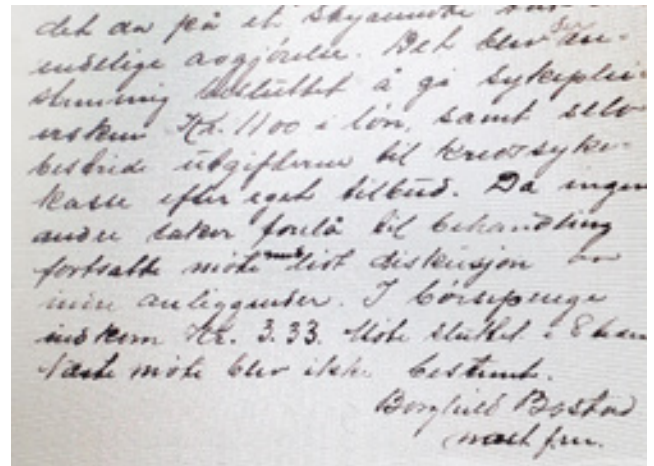 det da på et
endelige avgjørelse. Det blev en-
stemmig besluttet å gi sykeplei-
ersken Kr. 1100 i løn, samt selv
bestride utgifterne til kredssyke-
kasse efter eget tilbud. Da ingen
andre saker forelå til behandling
fortsatte møte med livt diskusjon
anliggender. I børsepenge
indkom Kr. 3.33. Møte sluttet
Næste møte blev ikke bestemt.
Borghild Bostad